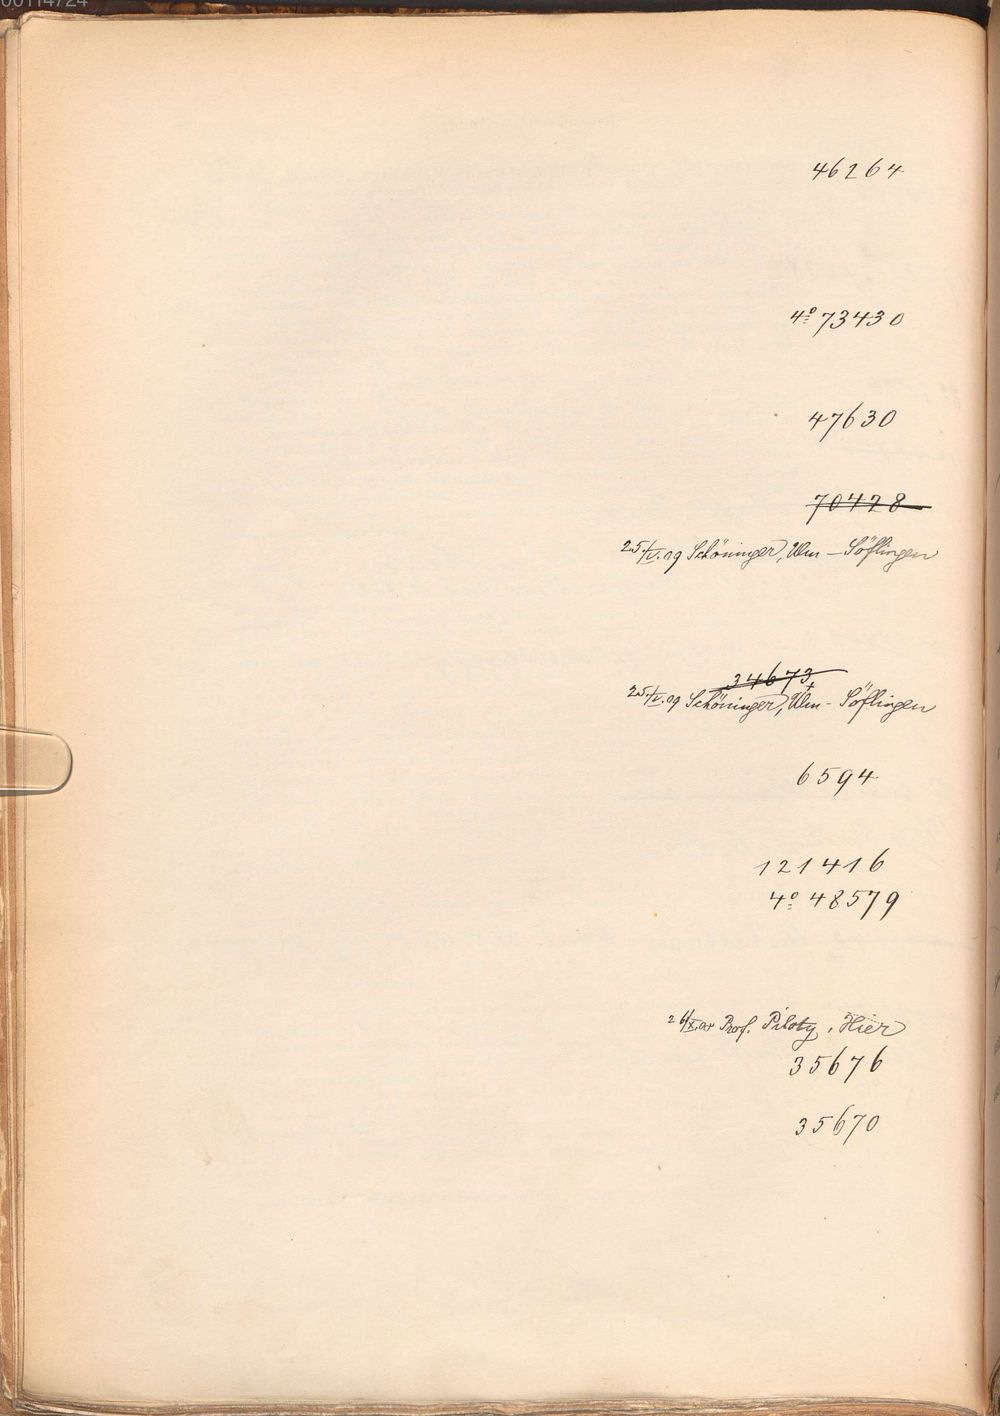 00114724
46264
4º 73430
47630
70428
25./V. 09 Schöninger, Ulm – Söflingen
34673
25./V. 09 Schöninger, Ulm - Söflingen
6594
121416
4º 48579
Prof. Piloty, Hier
35676
35670